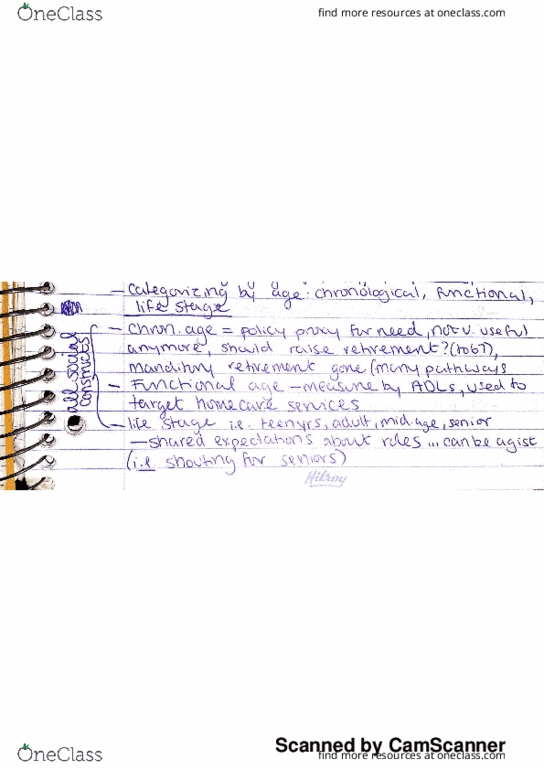 OneClass
find more resources at oneclass.com
– Categorizing by age: chronological, functional,
life stage
all social
constructs
– chron. age = policy proxy for need, not v. useful
anymore, should raise retirement? (to 67),
manditory retirement gone (many pathways
– Functional age – measure by ADLs, used to
target homecare services
– life stage i.e. teenyrs, adult, mid-age, senior
– shared expectations about roles ... can be agist
(i.e. shouting for seniors)
Hilroy
Scanned by CamScanner
OneClass
find more resources at oneclass.com